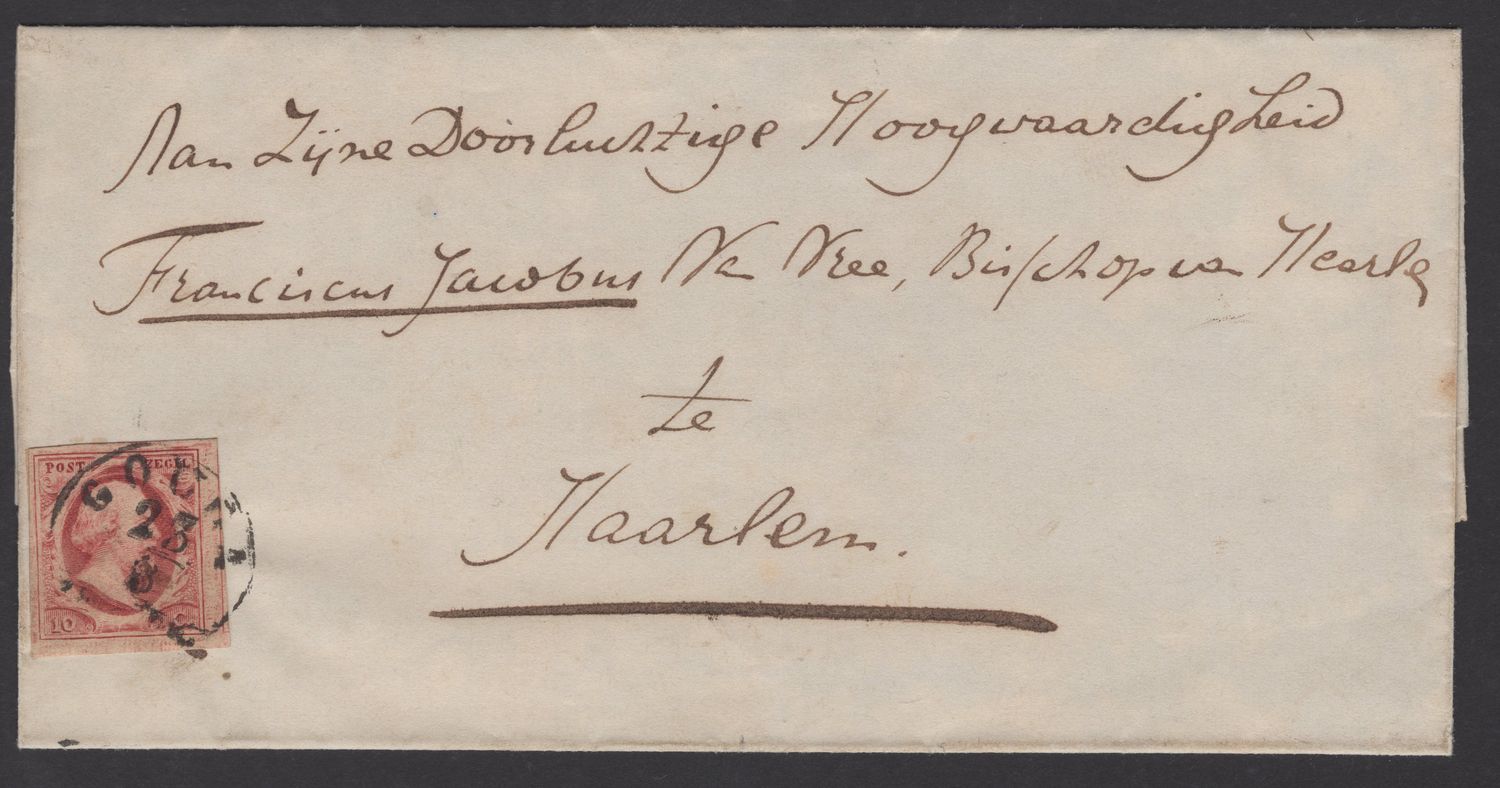 Aan Zijne Doorluchtige Hoogwaardigheid
Franciscus Jacobus Van Vree, Bisschop van Haarlem
te
Haarlem.
POST ZEGEL
GOCH
2 3
8
10